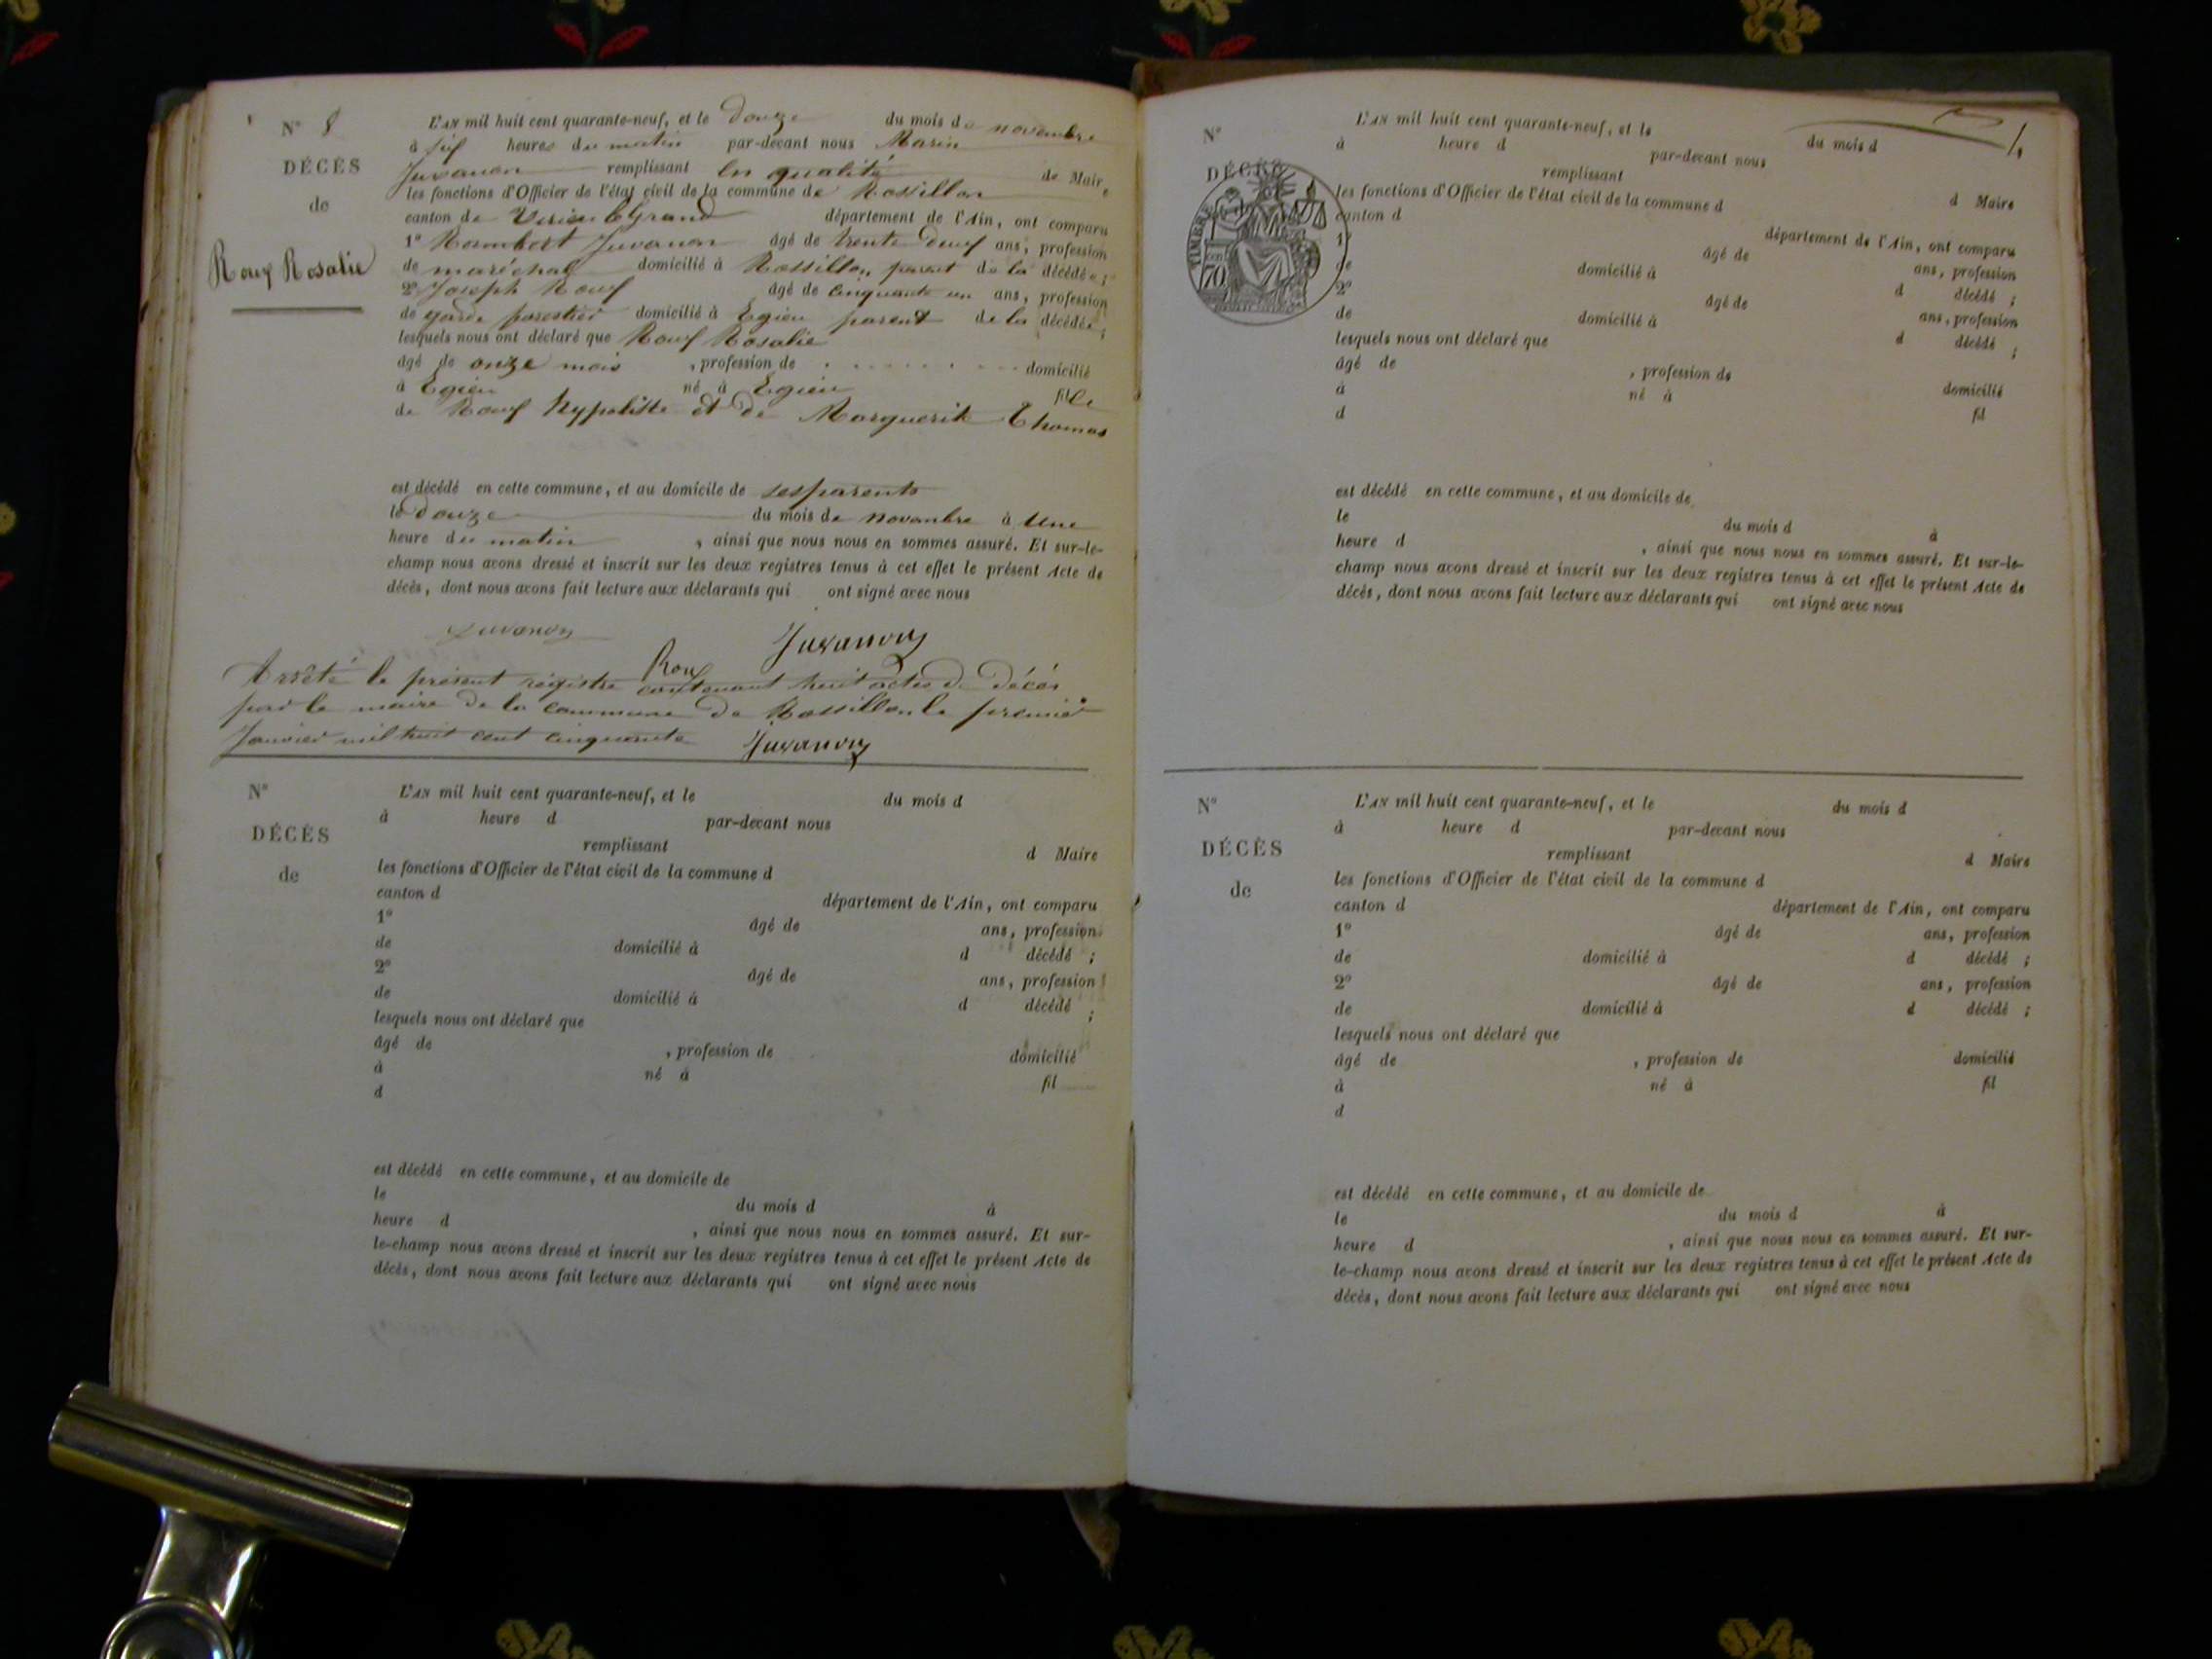 N° 8
DÉCÈS
de
Roux Rosalie
L'AN mil huit cent quarante-neuf, et le Douze du mois de novembre
à six heures du matin par-devant nous Marin
Juvanon remplissant en qualité de Maire
les fonctions d'Officier de l'état civil de la commune de Rossillon
canton de Virieu le Grand département de l'Ain, ont comparu
1° Rambert Juvanon âgé de trente deux ans, profession
de maréchal domicilié à Rossillon, parent de la décédée ;
2° Joseph Roux âgé de cinquante un ans, profession
de garde forestier domicilié à Egieu parent de la décédée ;
lesquels nous ont déclaré que Roux Rosalie
âgé de onze mois , profession de domicilié
à Egieu né à Egieu fille
de Roux hypolitte et de Marguerite Thomas
est décédé en cette commune, et au domicile de ses parents
le douze du mois de novembre à Une
heure du matin , ainsi que nous nous en sommes assuré. Et sur-le-
champ nous avons dressé et inscrit sur les deux registres tenus à cet effet le présent Acte de
décès, dont nous avons fait lecture aux déclarants qui ont signé avec nous
Juvanon Juvanon
Roux
Arrêté le présent registre contenant huit actes de Décès
par le maire de la commune de Rossillon le premier
Janvier mil huit cent cinquante Juvanon
N°
DÉCÈS
de
L'AN mil huit cent quarante-neuf, et le du mois d
à heure d par-devant nous
remplissant d Maire
les fonctions d'Officier de l'état civil de la commune d
canton d département de l'Ain, ont comparu
1° âgé de ans, profession
de domicilié à d décédé ;
2° âgé de ans, profession
de domicilié à d décédé ;
lesquels nous ont déclaré que
âgé de , profession de domicilié
à né à fil
d
est décédé en cette commune, et au domicile de
le du mois d à
heure d , ainsi que nous nous en sommes assuré. Et sur-
le-champ nous avons dressé et inscrit sur les deux registres tenus à cet effet le présent Acte de
décès, dont nous avons fait lecture aux déclarants qui ont signé avec nous
N°
DÉCÈS
TIMBRE
70
L'AN mil huit cent quarante-neuf, et le du mois d
à heure d par-devant nous
remplissant d Maire
les fonctions d'Officier de l'état civil de la commune d
canton d département de l'Ain, ont comparu
1° âgé de ans, profession
de domicilié à d décédé ;
2° âgé de ans, profession
de domicilié à d décédé ;
lesquels nous ont déclaré que
âgé de , profession de domicilié
à né à fil
d
est décédé en cette commune, et au domicile de
le du mois d à
heure d , ainsi que nous nous en sommes assuré. Et sur-le-
champ nous avons dressé et inscrit sur les deux registres tenus à cet effet le présent Acte de
décès, dont nous avons fait lecture aux déclarants qui ont signé avec nous
N°
DÉCÈS
de
L'AN mil huit cent quarante-neuf, et le du mois d
à heure d par-devant nous
remplissant d Maire
les fonctions d'Officier de l'état civil de la commune d
canton d département de l'Ain, ont comparu
1° âgé de ans, profession
de domicilié à d décédé ;
2° âgé de ans, profession
de domicilié à d décédé ;
lesquels nous ont déclaré que
âgé de , profession de domicilié
à né à fil
d
est décédé en cette commune, et au domicile de
le du mois d à
heure d , ainsi que nous nous en sommes assuré. Et sur-
le-champ nous avons dressé et inscrit sur les deux registres tenus à cet effet le présent Acte de
décès, dont nous avons fait lecture aux déclarants qui ont signé avec nous